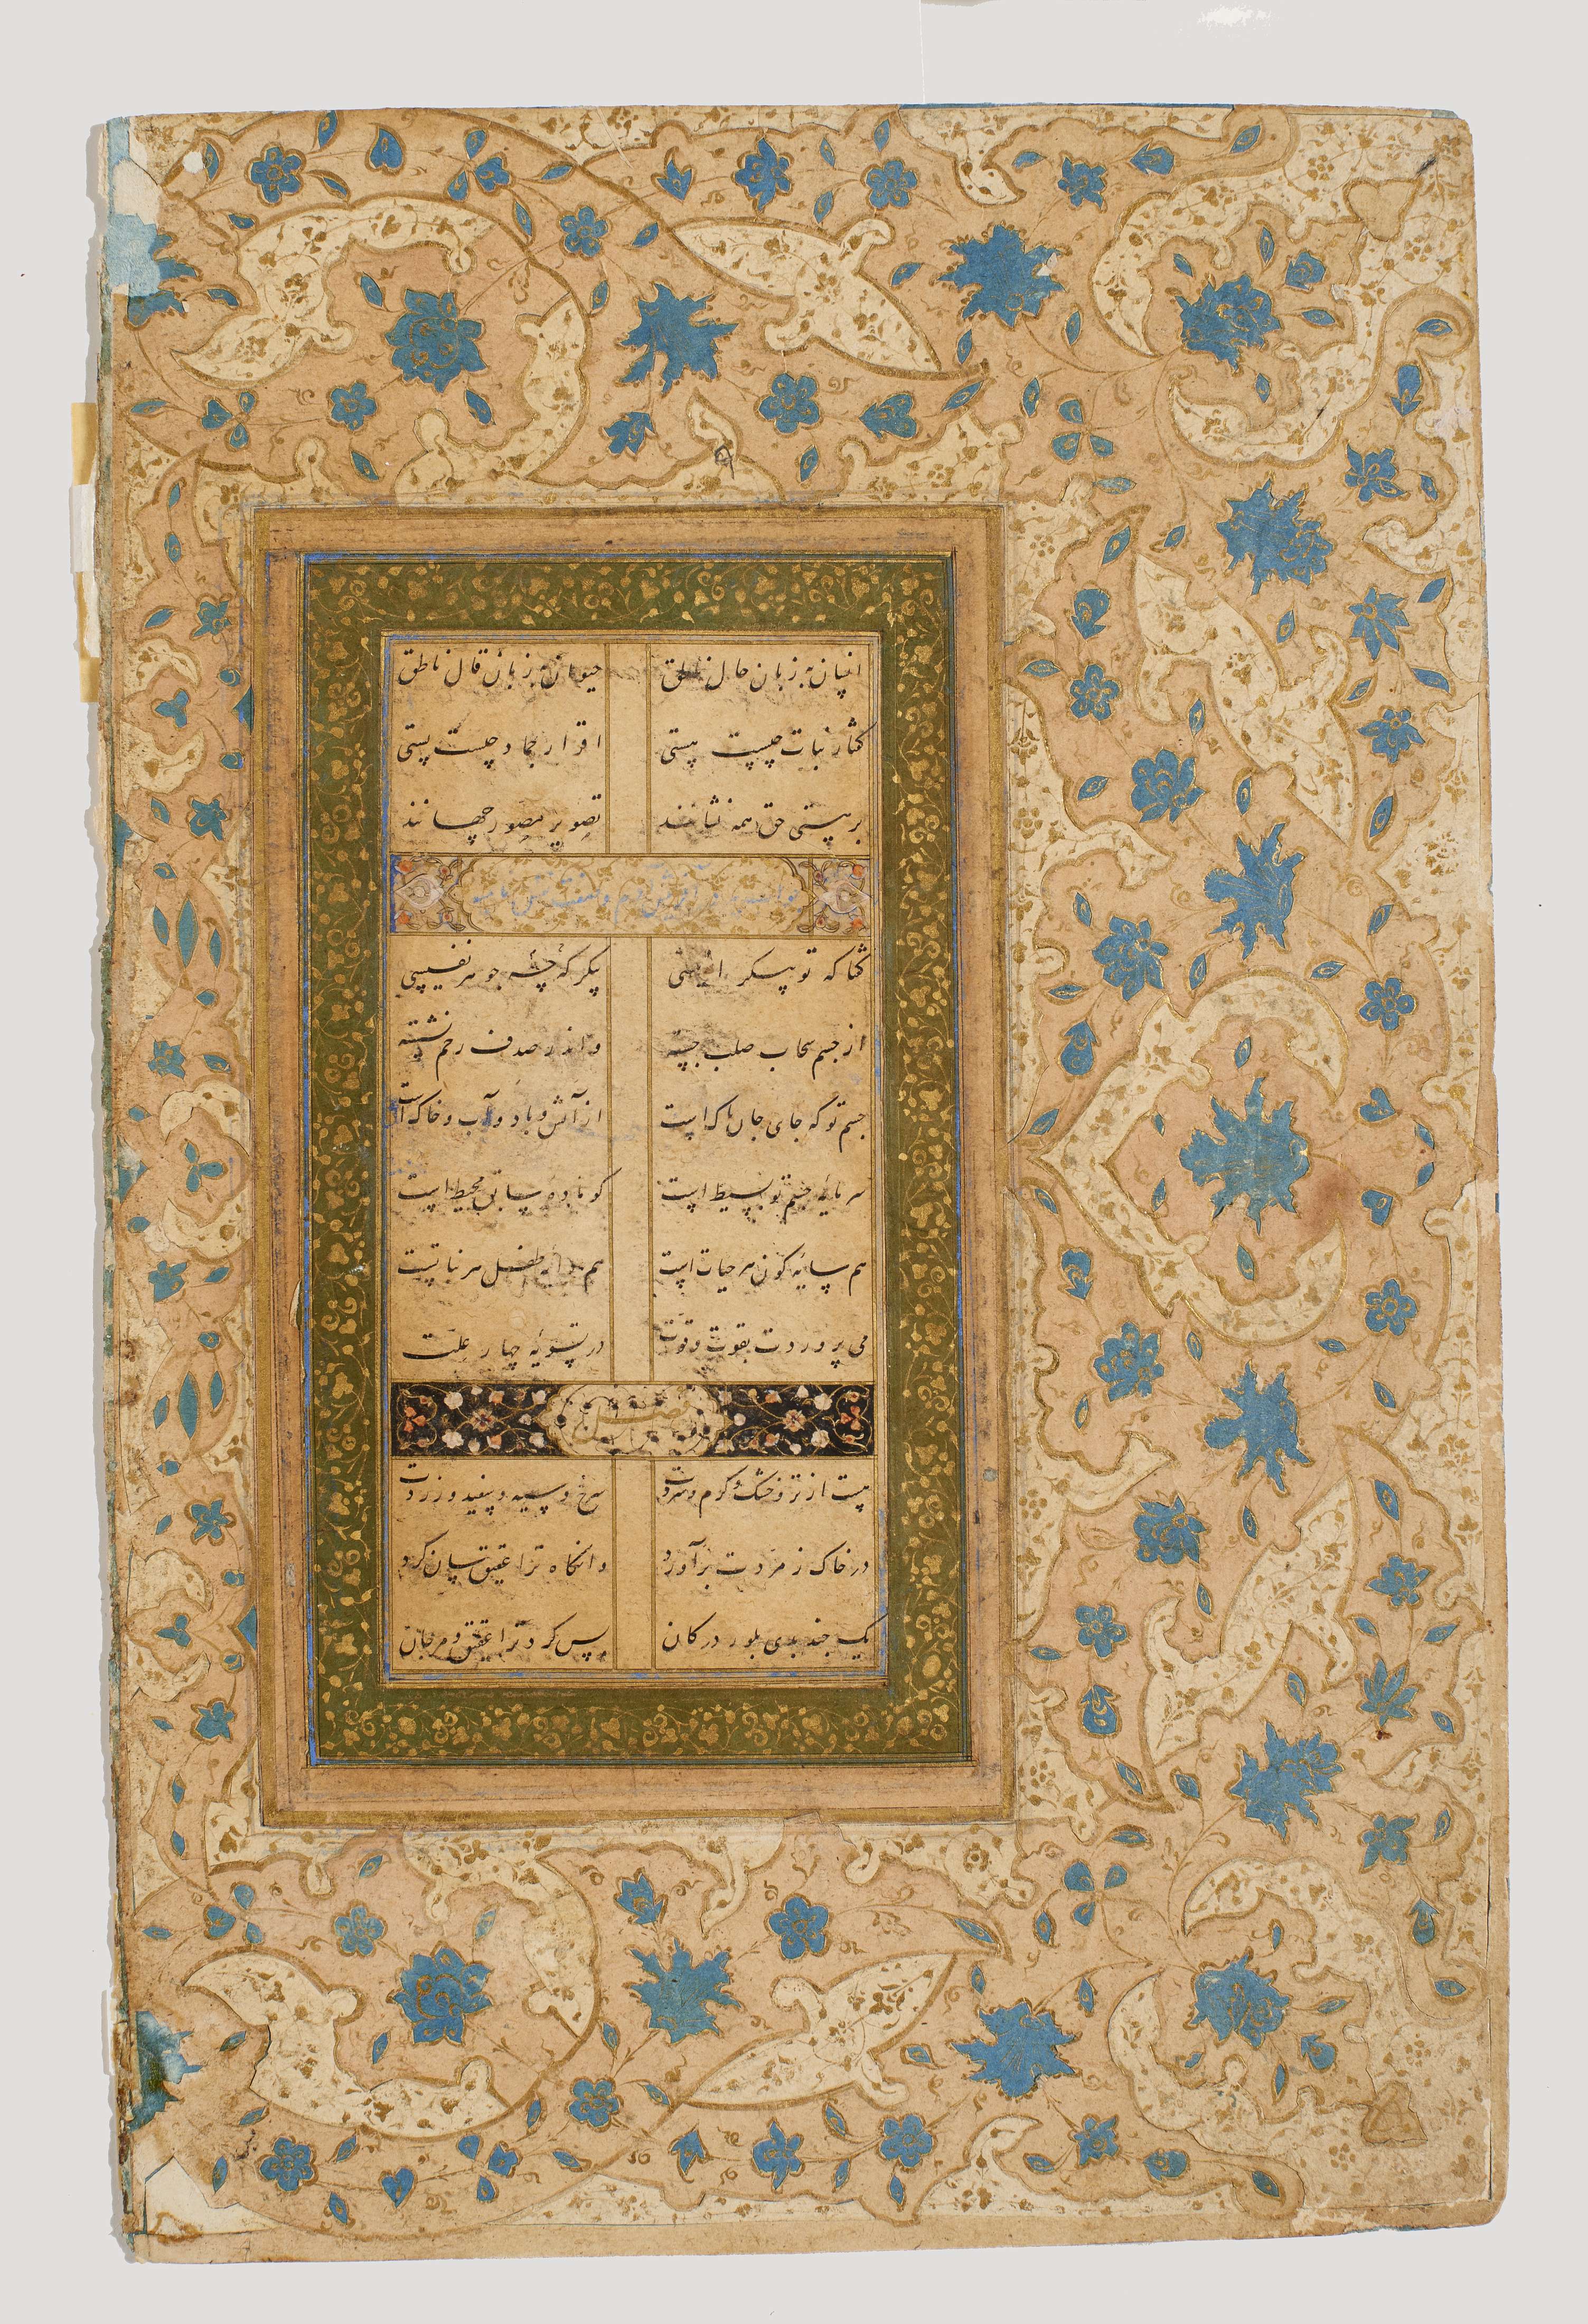 انسان به زبان حال ناطق حیوان به زبان قال ناطق
گفتار نبات چیست هستی اقرار جماد چیست پستی
بر هستی حق همه نشانند تصویر مصور جهانند
در آفرینش آدم و
گفتا که تو پیکر بگر که چه جوهر نفیسی
از جسم سحاب صلب جسته و اندر صدف رحم نشسته
جسم تو که جای جان پاک است از آتش و باد و آب و خاک است
سرمایه جسم تو بسیط است کو محیط است
هم سایه کون هر حیات است هم دایه طفل هر نبات است
می پروردت بقوت و قوت در تسویه چهار علت
هست از تر و خشک و گرم و سردت سرخ و سیه و سپید و زردت
در خاک زمردت برآورد و آنگاه ترا عقیق سان کرد
یک چند بدی بلور در کان پس کرد ترا عقیق و مرجان